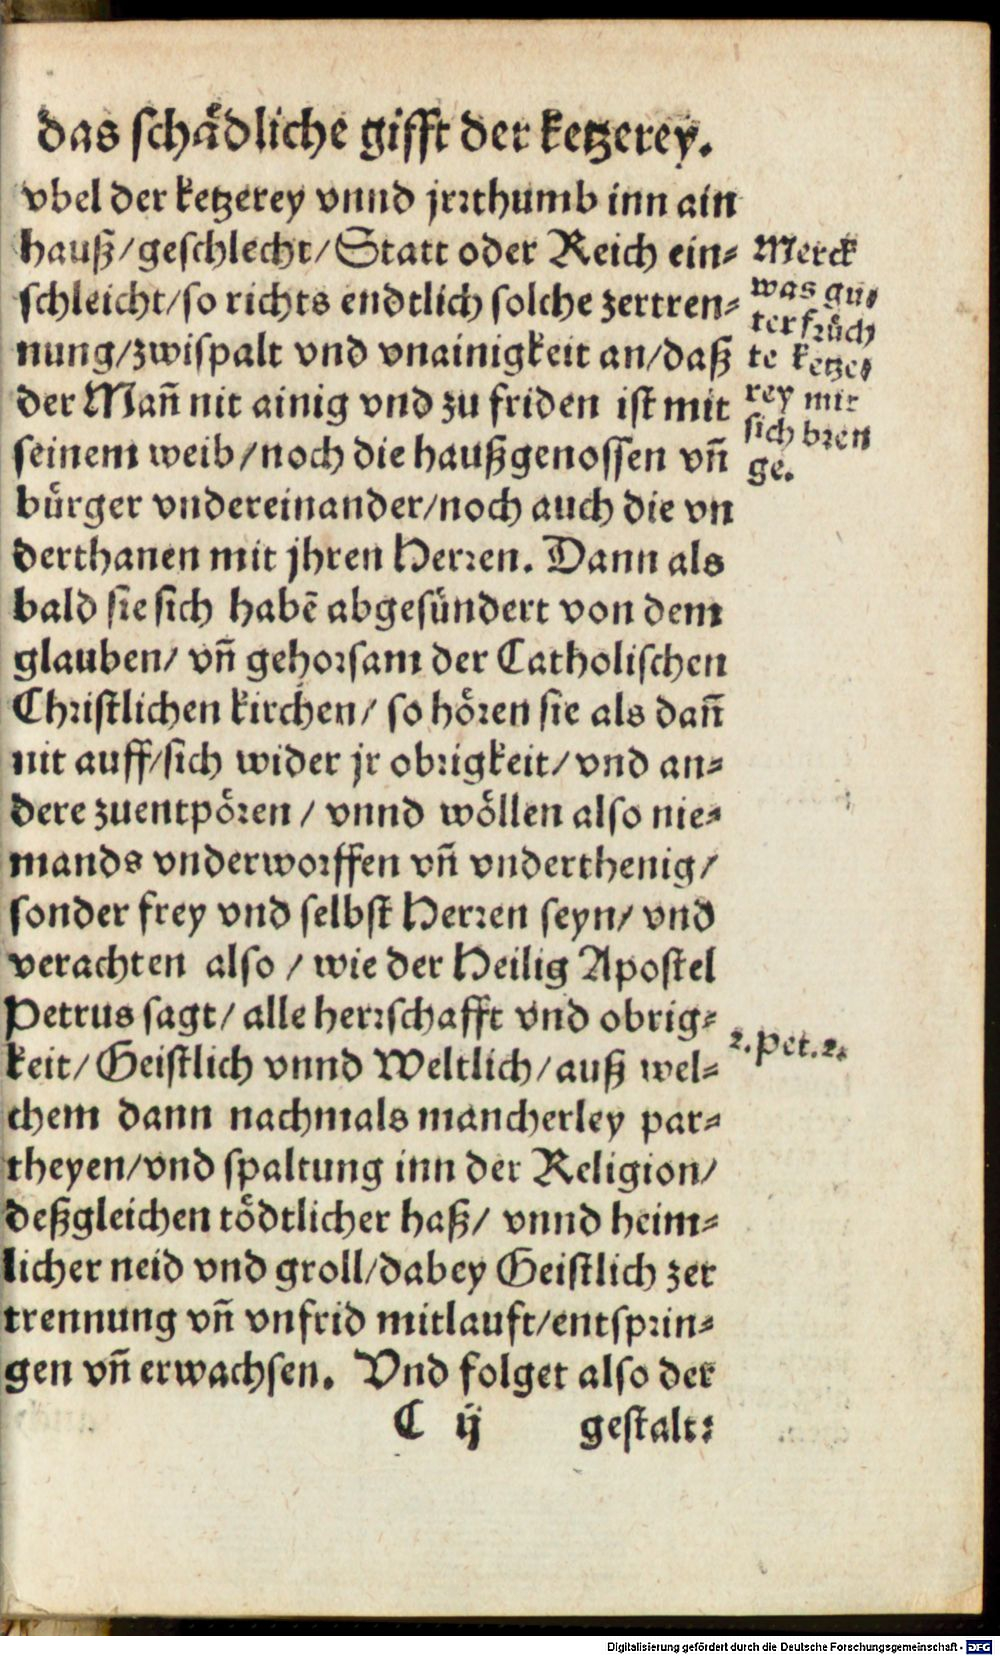 das schådliche gifft der ketzerey.
vbel der ketzerey vnnd jrrthumb inn ain
hauß/geschlecht/Statt oder Reich ein-
schleicht/so richts endtlich solche zertren-
nung/zwispalt vnd vnainigkeit an/daß
der Mañ nit ainig vnd zu friden ist mit
seinem weib/noch die haußgenossen vñ
bůrger vndereinander/noch auch die vn
derthanen mit jhren Herren. Dann als
bald sie sich habẽ abgesündert von dem
glauben/ vñ gehorsam der Catholischen
Christlichen kirchen/ so hören sie als dañ
nit auff/sich wider jr obrigkeit/vnd an-
dere zuentpören / vnnd wöllen also nie-
mands vnderworffen vñ vnderthenig/
sonder frey vnd selbst Herren seyn/ vnd
verachten also / wie der Heilig Apostel
Petrus sagt/ alle herrschafft vnd obrig-
keit/ Geistlich vnnd Weltlich/auß wel-
chem dann nachmals mancherley par-
theyen/vnd spaltung inn der Religion/
deßgleichen tödtlicher haß/ vnnd heim-
licher neid vnd groll/dabey Geistlich zer
trennung vñ vnfrid mitlauft/entsprin-
gen vñ erwachsen. Vnd folget also der
C ij gestalt:
Merck
was gu-
ter früch
te ketze-
rey mit
sich bren
ge.
2.Pet.2.
Digitalisierung gefördert durch die Deutsche Forschungsgemeinschaft - DFG